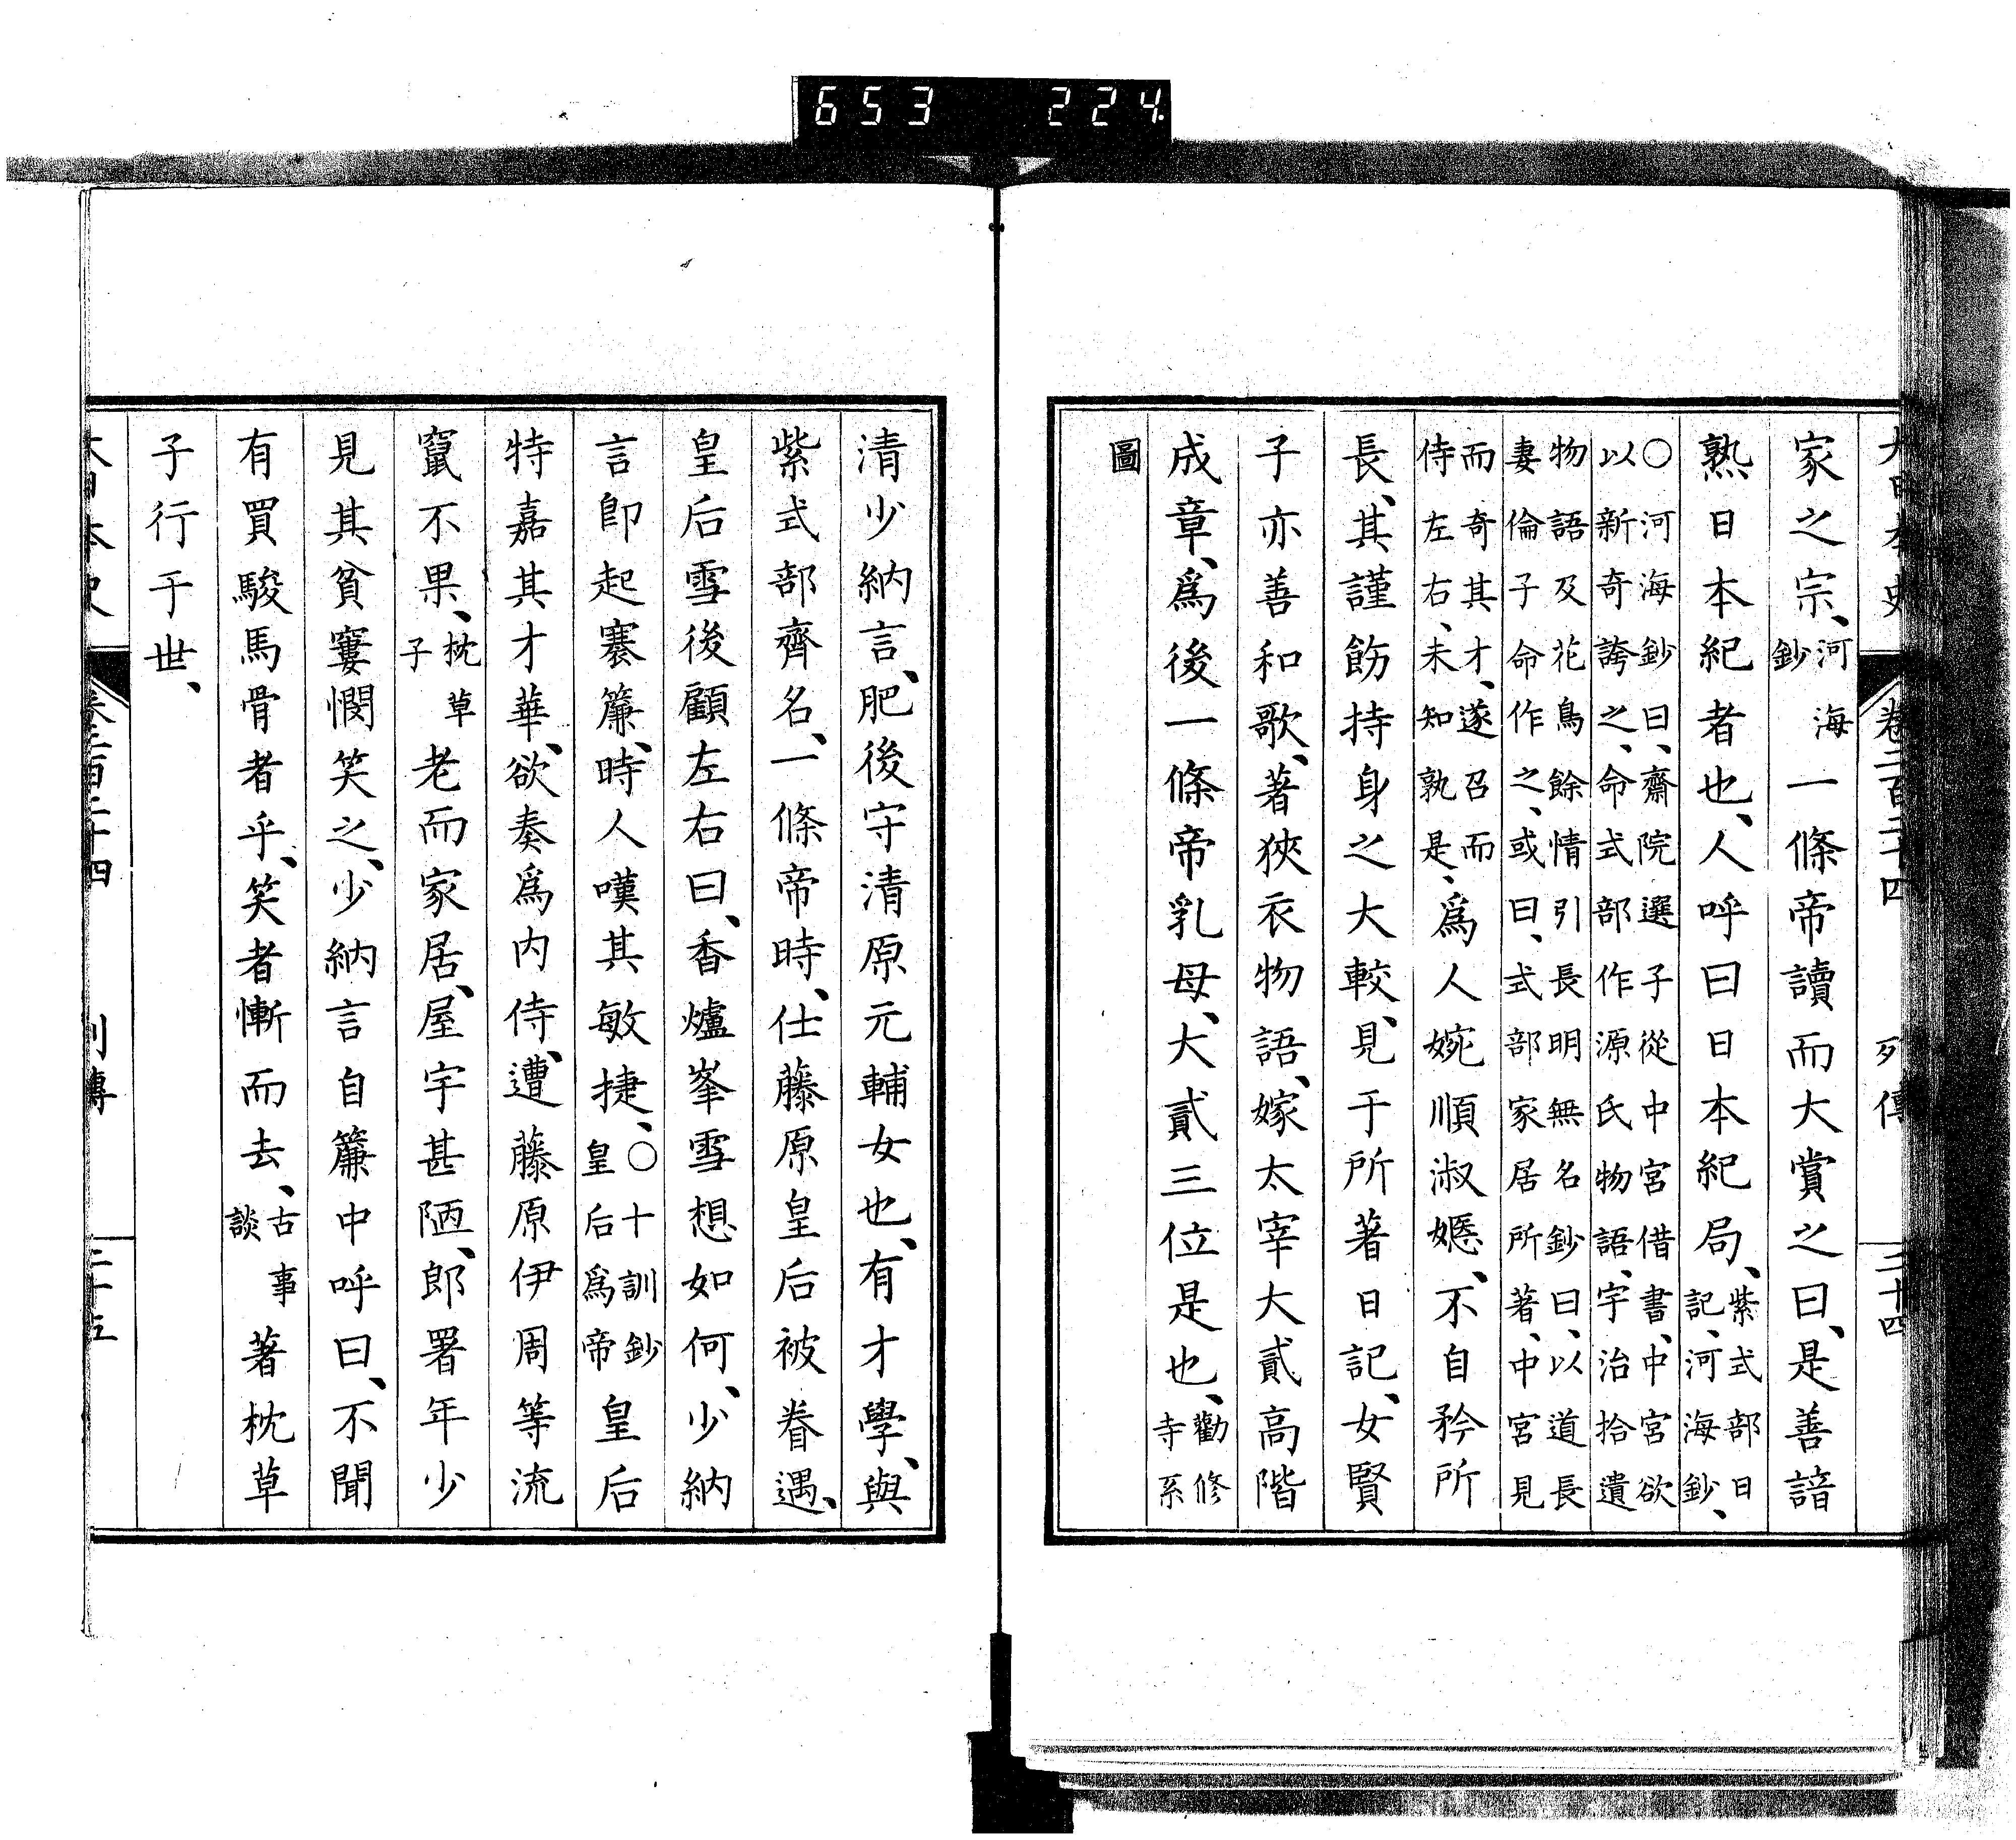 653 224
大日本史 卷二百二十四 列傳 二十四
家之宗、河海鈔一條帝讀而大賞之曰、是善諳
熟日本紀者也、人呼曰日本紀局、紫式部日記、河海鈔、
○河海鈔曰、齋院選子從中宮借書、中宮欲
以新奇誇之、命式部作源氏物語、宇治拾遺
物語及花鳥餘情引長明無名鈔曰、以道長
妻倫子命作之、或曰、式部家居所著、中宮見
而奇其才、遂召而
侍左右、未知孰是、爲人婉順淑㜝、不自矜所
長、其謹飭持身之大較、見于所著日記、女賢
子亦善和歌、著狹衣物語、嫁太宰大貳高階
成章、爲後一條帝乳母、大貳三位是也、勸修寺系
圖
清少納言、肥後守清原元輔女也、有才學、與
紫式部齊名、一條帝時、仕藤原皇后被眷遇、
皇后雪後顧左右曰、香爐峯雪想如何、少納
言卽起褰簾、時人嘆其敏捷、○十訓鈔皇后爲帝皇后
特嘉其才華、欲奏爲内侍、遭藤原伊周等流
竄不果、枕草子老而家居、屋宇甚陋、郎署年少
見其貧窶憫笑之、少納言自簾中呼曰、不聞
有買駿馬骨者乎、笑者慚而去、古事談著枕草
子行于世、
大日本史 卷二百二十四 列傳 二十五